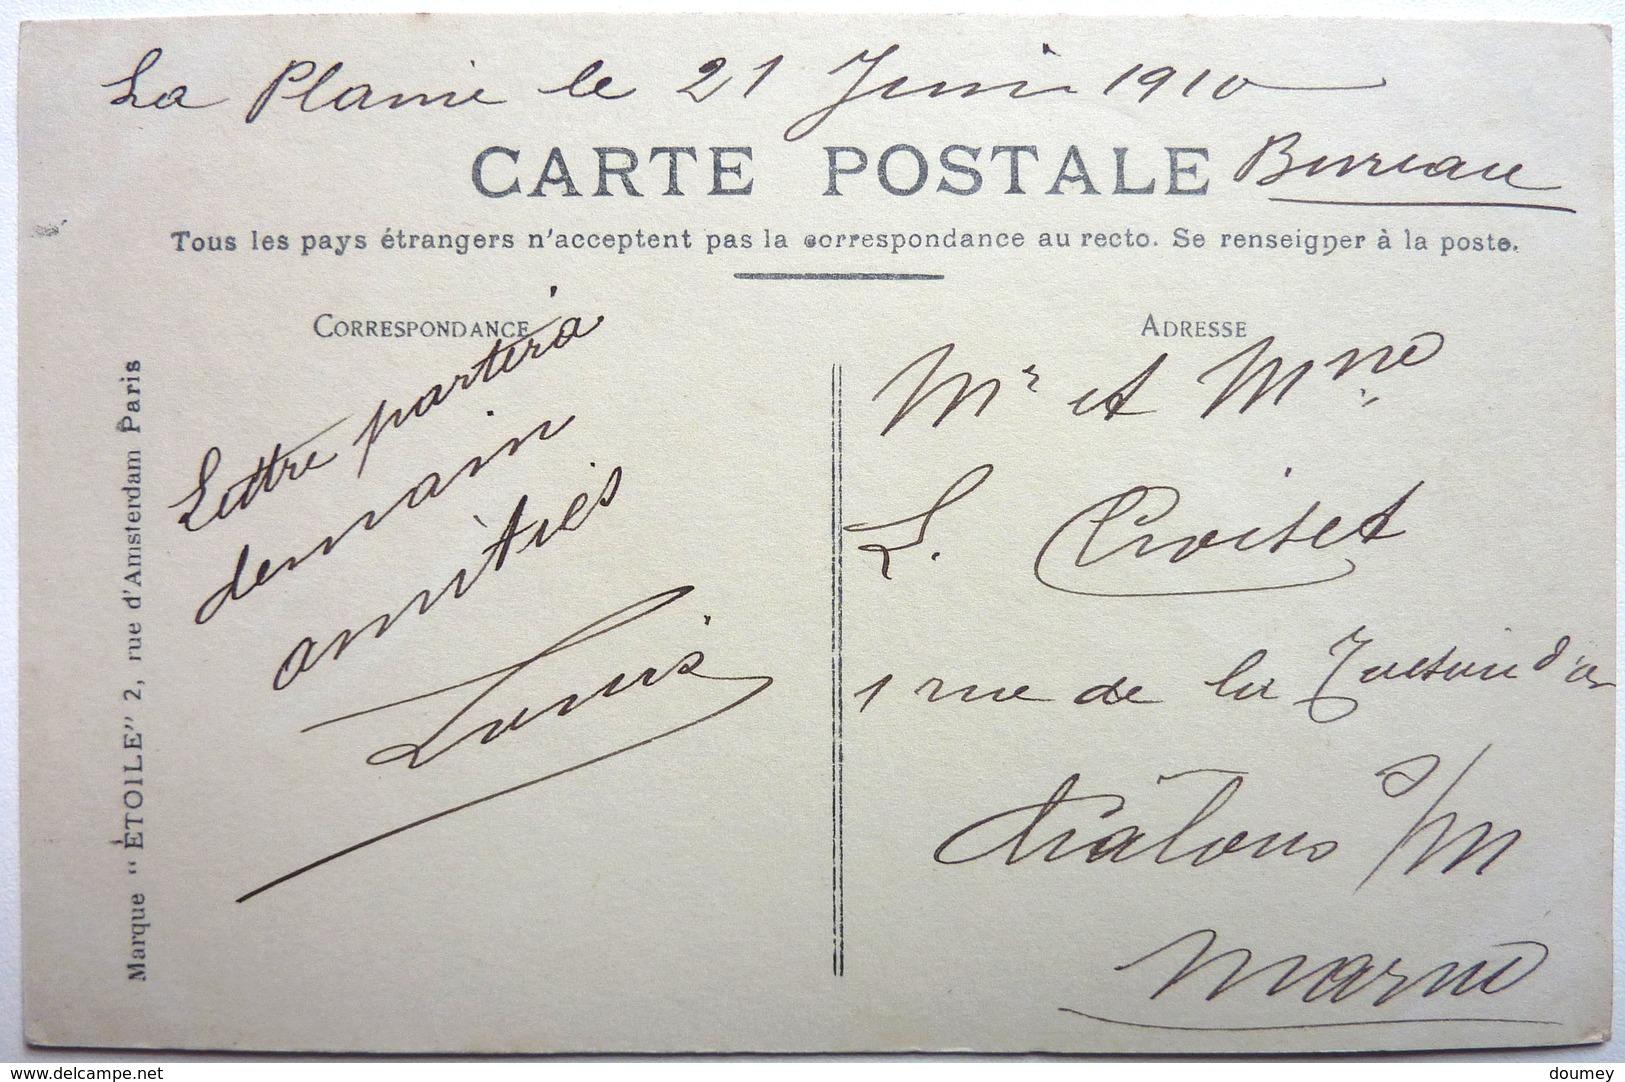 La Plaine le 21 Juin 1910
CARTE POSTALE Bureau
Tous les pays étrangers n'acceptent pas la correspondance au recto. Se renseigner à la poste.
CORRESPONDANCE
Lettre partira
demain
amitiés
Louis
Marque "ÉTOILE" 2, rue d'Amsterdam Paris
ADRESSE
Mr et Mme
L. Croiset
1 rue de la d'or
Châlons s/M
Marne
www.delcampe.net
doumey